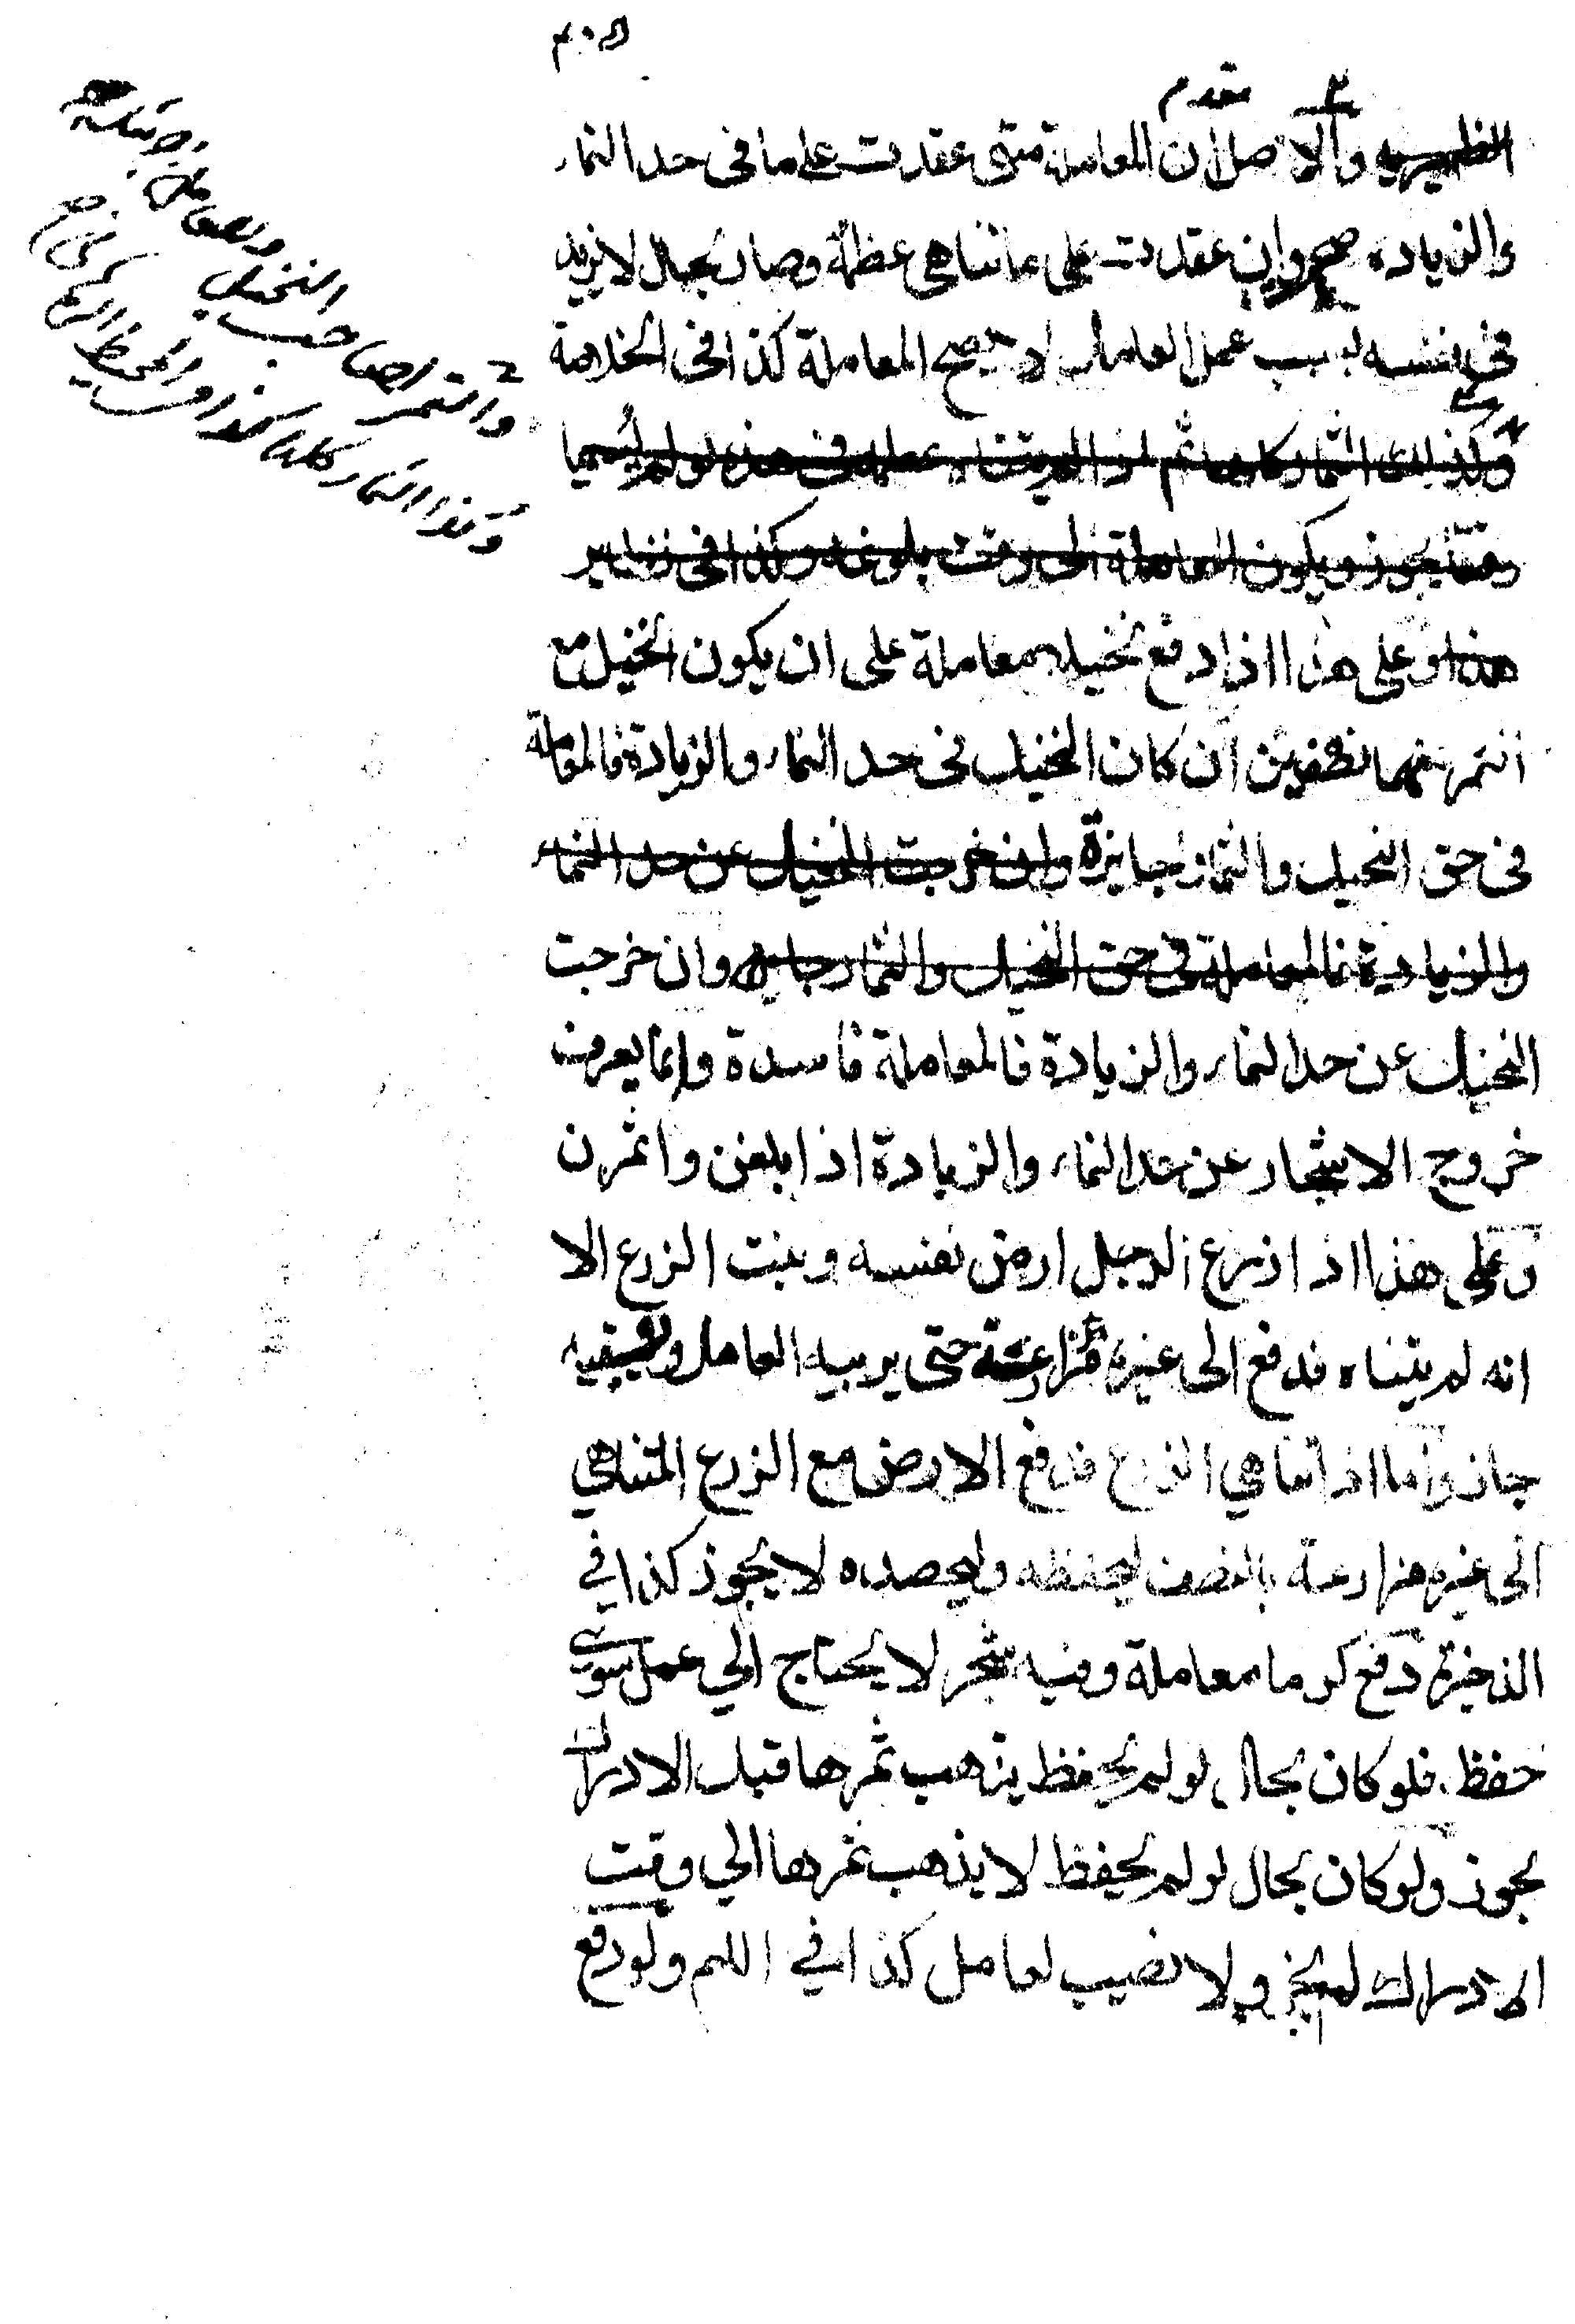 ٢ مقدم
الظهيرية والاصل ان المعاملة متى عقدت على ما فى حد النماء
والزيادة صح وان عقدت على ما تناهى عظمه وصار بحال لا يزيد
فى نفسه بسبب عمل العامل لا يصح المعاملة كذا فى الخلاصة
وكذلك الثمار كلها ثم اذا لم يتناه عظمه فى هذه لو لم يسميا
وقتا يجوز ويكون المعاملة الى وقت بلوغه وكذا فى نظاير
هذا وعلى هذا اذا دفع نخيله معاملة على ان يكون النخيل مع
الثمر بينهما نصفين ان كان النخيل فى حد النماء والزيادة فالمعاملة
فى حق النخيل والثمار جايزة وان خرجت النخيل عن حد النماء
والزيادة فالمعاملة فى حق النخيل والثمار جايزة وان خرجت
النخيل عن حد النماء والزيادة فالمعاملة فاسدة وانما يعرف
خروج الاشجار عن حد النماء والزيادة اذا بلغن واثمرن
وعلى هذا اذا زرع الرجل ارض نفسه وبنت الزرع الا
انه لم يتناه فدفع الى غيره مزارعة حتى يربيه العامل ويسقيه
جاز واما اذا تناهي الزرع فدفع الارض مع الزرع المتناهي
الى غيره مزارعة بالنصف ليحفظه وليحصده لا يجوز كذا في
الذخيرة دفع كرما معاملة وفيه شجر لا يحتاج الي عمل سوى
حفظ فلو كان بحال لو لم يحفظ يذهب ثمرها قبل الادراك
يجوز ولو كان بحال لو لم يحفظ لا يذهب ثمرها الي وقت
الادراك لم يجز ولا نصيب لعامل كذا في ولو دفع
وللعامل
النخيل
والثمر لصاحب
وكذا الثمار كلها كذا في محيط السرخسى